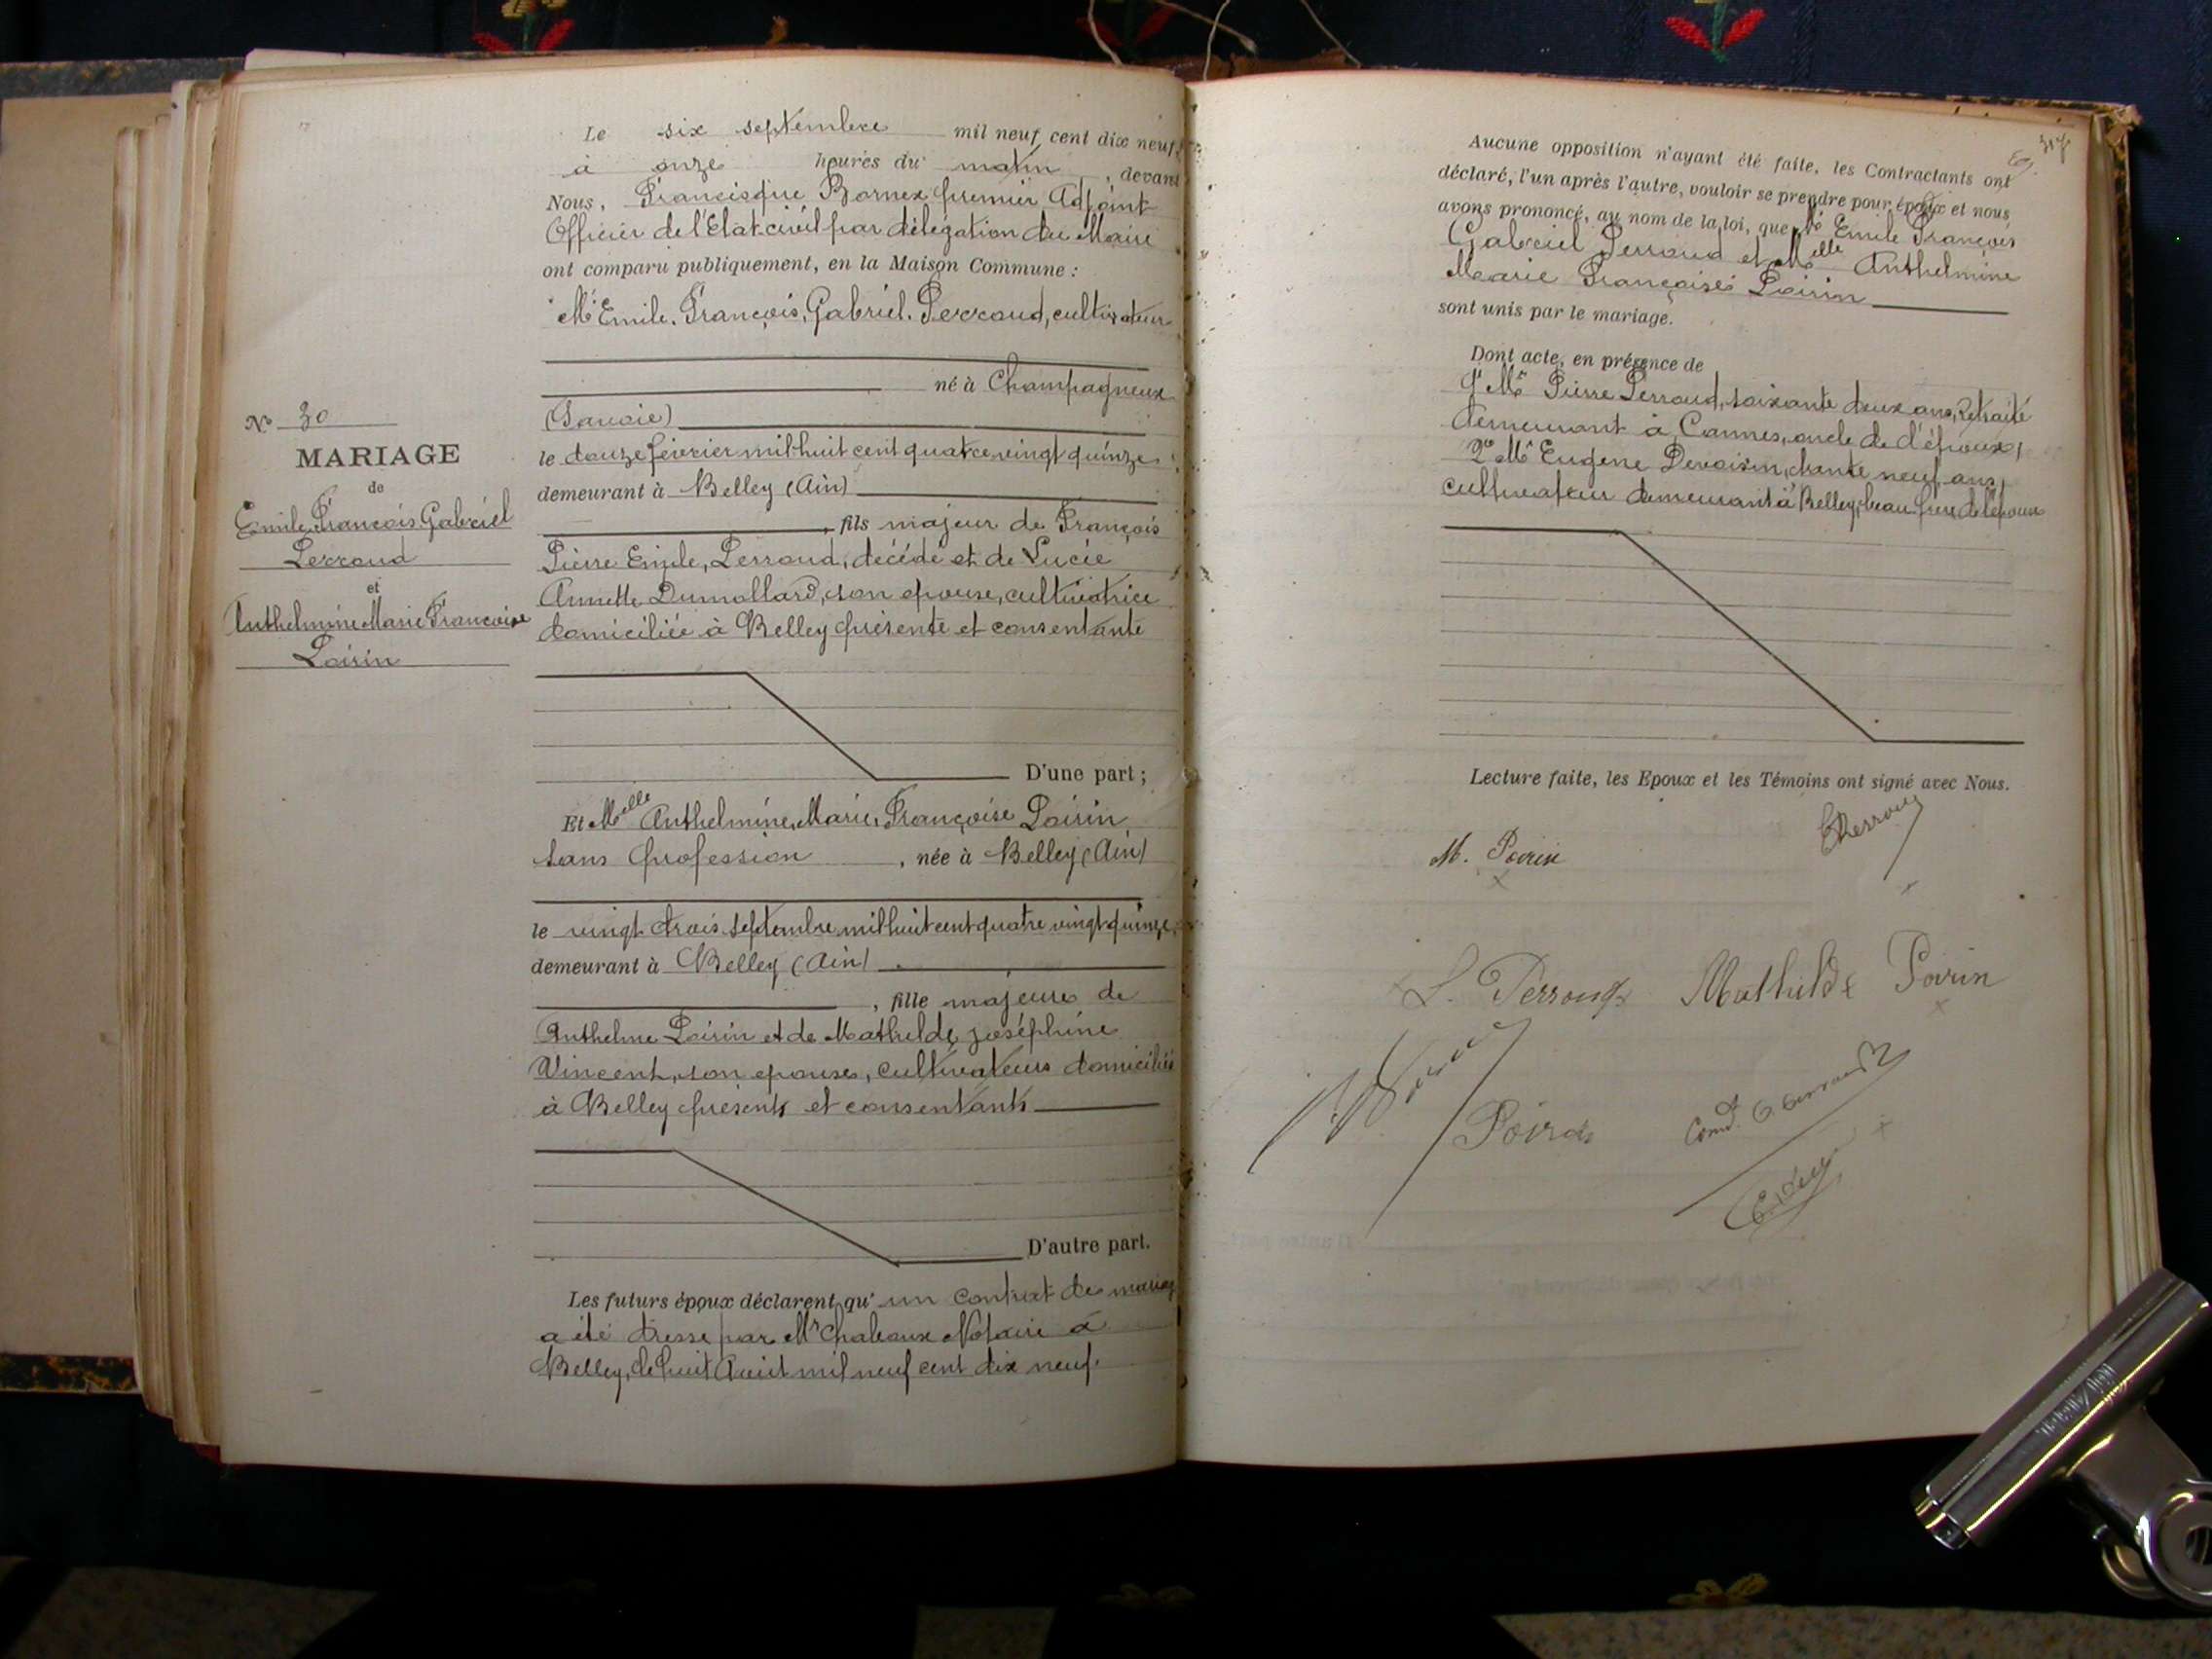 Le six septembre mil neuf cent dix neuf,
à onze heures du matin, devant
Nous, Francisque Bornex premier Adjoint
Officier de l'Etat-civil par délégation du Maire
ont comparu publiquement, en la Maison Commune :
Mr Emile, François, Gabriel, Perraud, cultivateur
né à Champagneux
(Savoie)
le douze février mil huit cent quatre vingt quinze
demeurant à Belley (Ain)
, fils majeur de François
Pierre Emile, Perraud, décédé et de Lucie
Annette Dumollard, son épouse, cultivatrice
domiciliée à Belley présente et consentante
D'une part ;
Et Melle Anthelmine, Marie, Françoise Poirin
sans profession, née à Belley (Ain)
le vingt trois septembre mil huit cent quatre vingt quinze,
demeurant à Belley (Ain)
, fille majeure de
Anthelme Poirin et de Mathilde Joséphine
Vincent, son épouse, cultivateurs domiciliés
à Belley présents et consentants
D'autre part.
Les futurs époux déclarent qu'un contrat de mariage
a été dressé par Mr Chaboux Notaire à
Belley, le huit Août mil neuf cent dix neuf.
No 30
MARIAGE
de
Emile François Gabriel
Perraud
et
Anthelmine Marie Françoise
Poirin
Aucune opposition n'ayant été faite, les Contractants ont
déclaré, l'un après l'autre, vouloir se prendre pour époux et nous
avons prononcé, au nom de la loi, que Mr Emile François
Gabriel Perraud et Melle Anthelmine
Marie Françoise Poirin
sont unis par le mariage.
Dont acte, en présence de
1o Mr Pierre Perraud, soixante deux ans, Retraité
demeurant à Cannes, oncle de l'époux,
2o Mr Eugène Devoisin, trente neuf ans,
cultivateur demeurant à Belley, beau frère de l'époux
Lecture faite, les Epoux et les Témoins ont signé avec Nous.
EPerraud
M. Poirin
L. Perraud Mathilde Poirin
Poirin